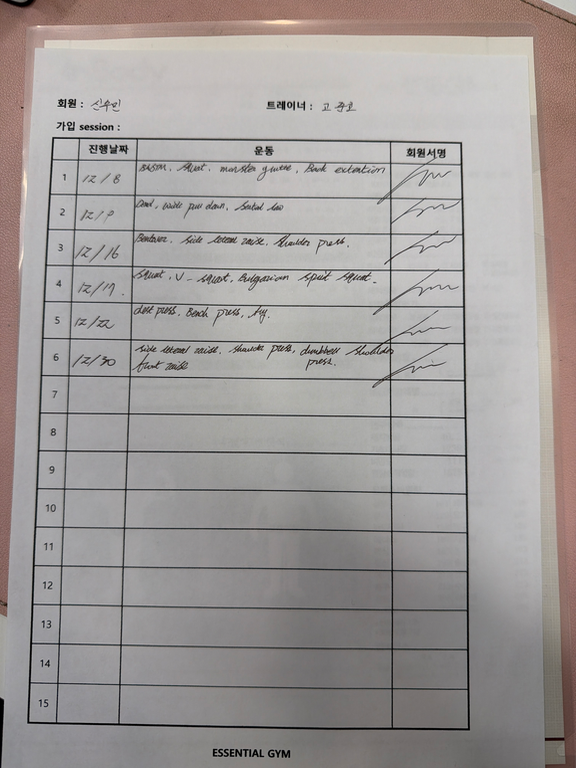 회원 : 신수민 트레이너 : 고
가입 session :
진행날짜 운동 회원서명
1 12/8 Squat, monster glute, Back extention
2 12/9 Dead, wide pull down,
3 12/16 Bentover, side leteral raise, shoulder press,
4 12/17. squat, V-squat, Bulgarian split squat.
5 12/22 press, Bench press,
6 12/30 side leteral raise, shoulder press, dumbbell shoulder press.
front raise
7
8
9
10
11
12
13
14
15
ESSENTIAL GYM